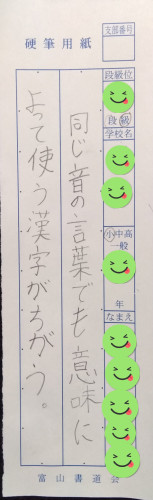 硬筆用紙
支部番号
段級位
段級
学校名
小中高
一般
年
なまえ
同じ音の言葉でも意味に
よって使う漢字がちがう。
富山書道会